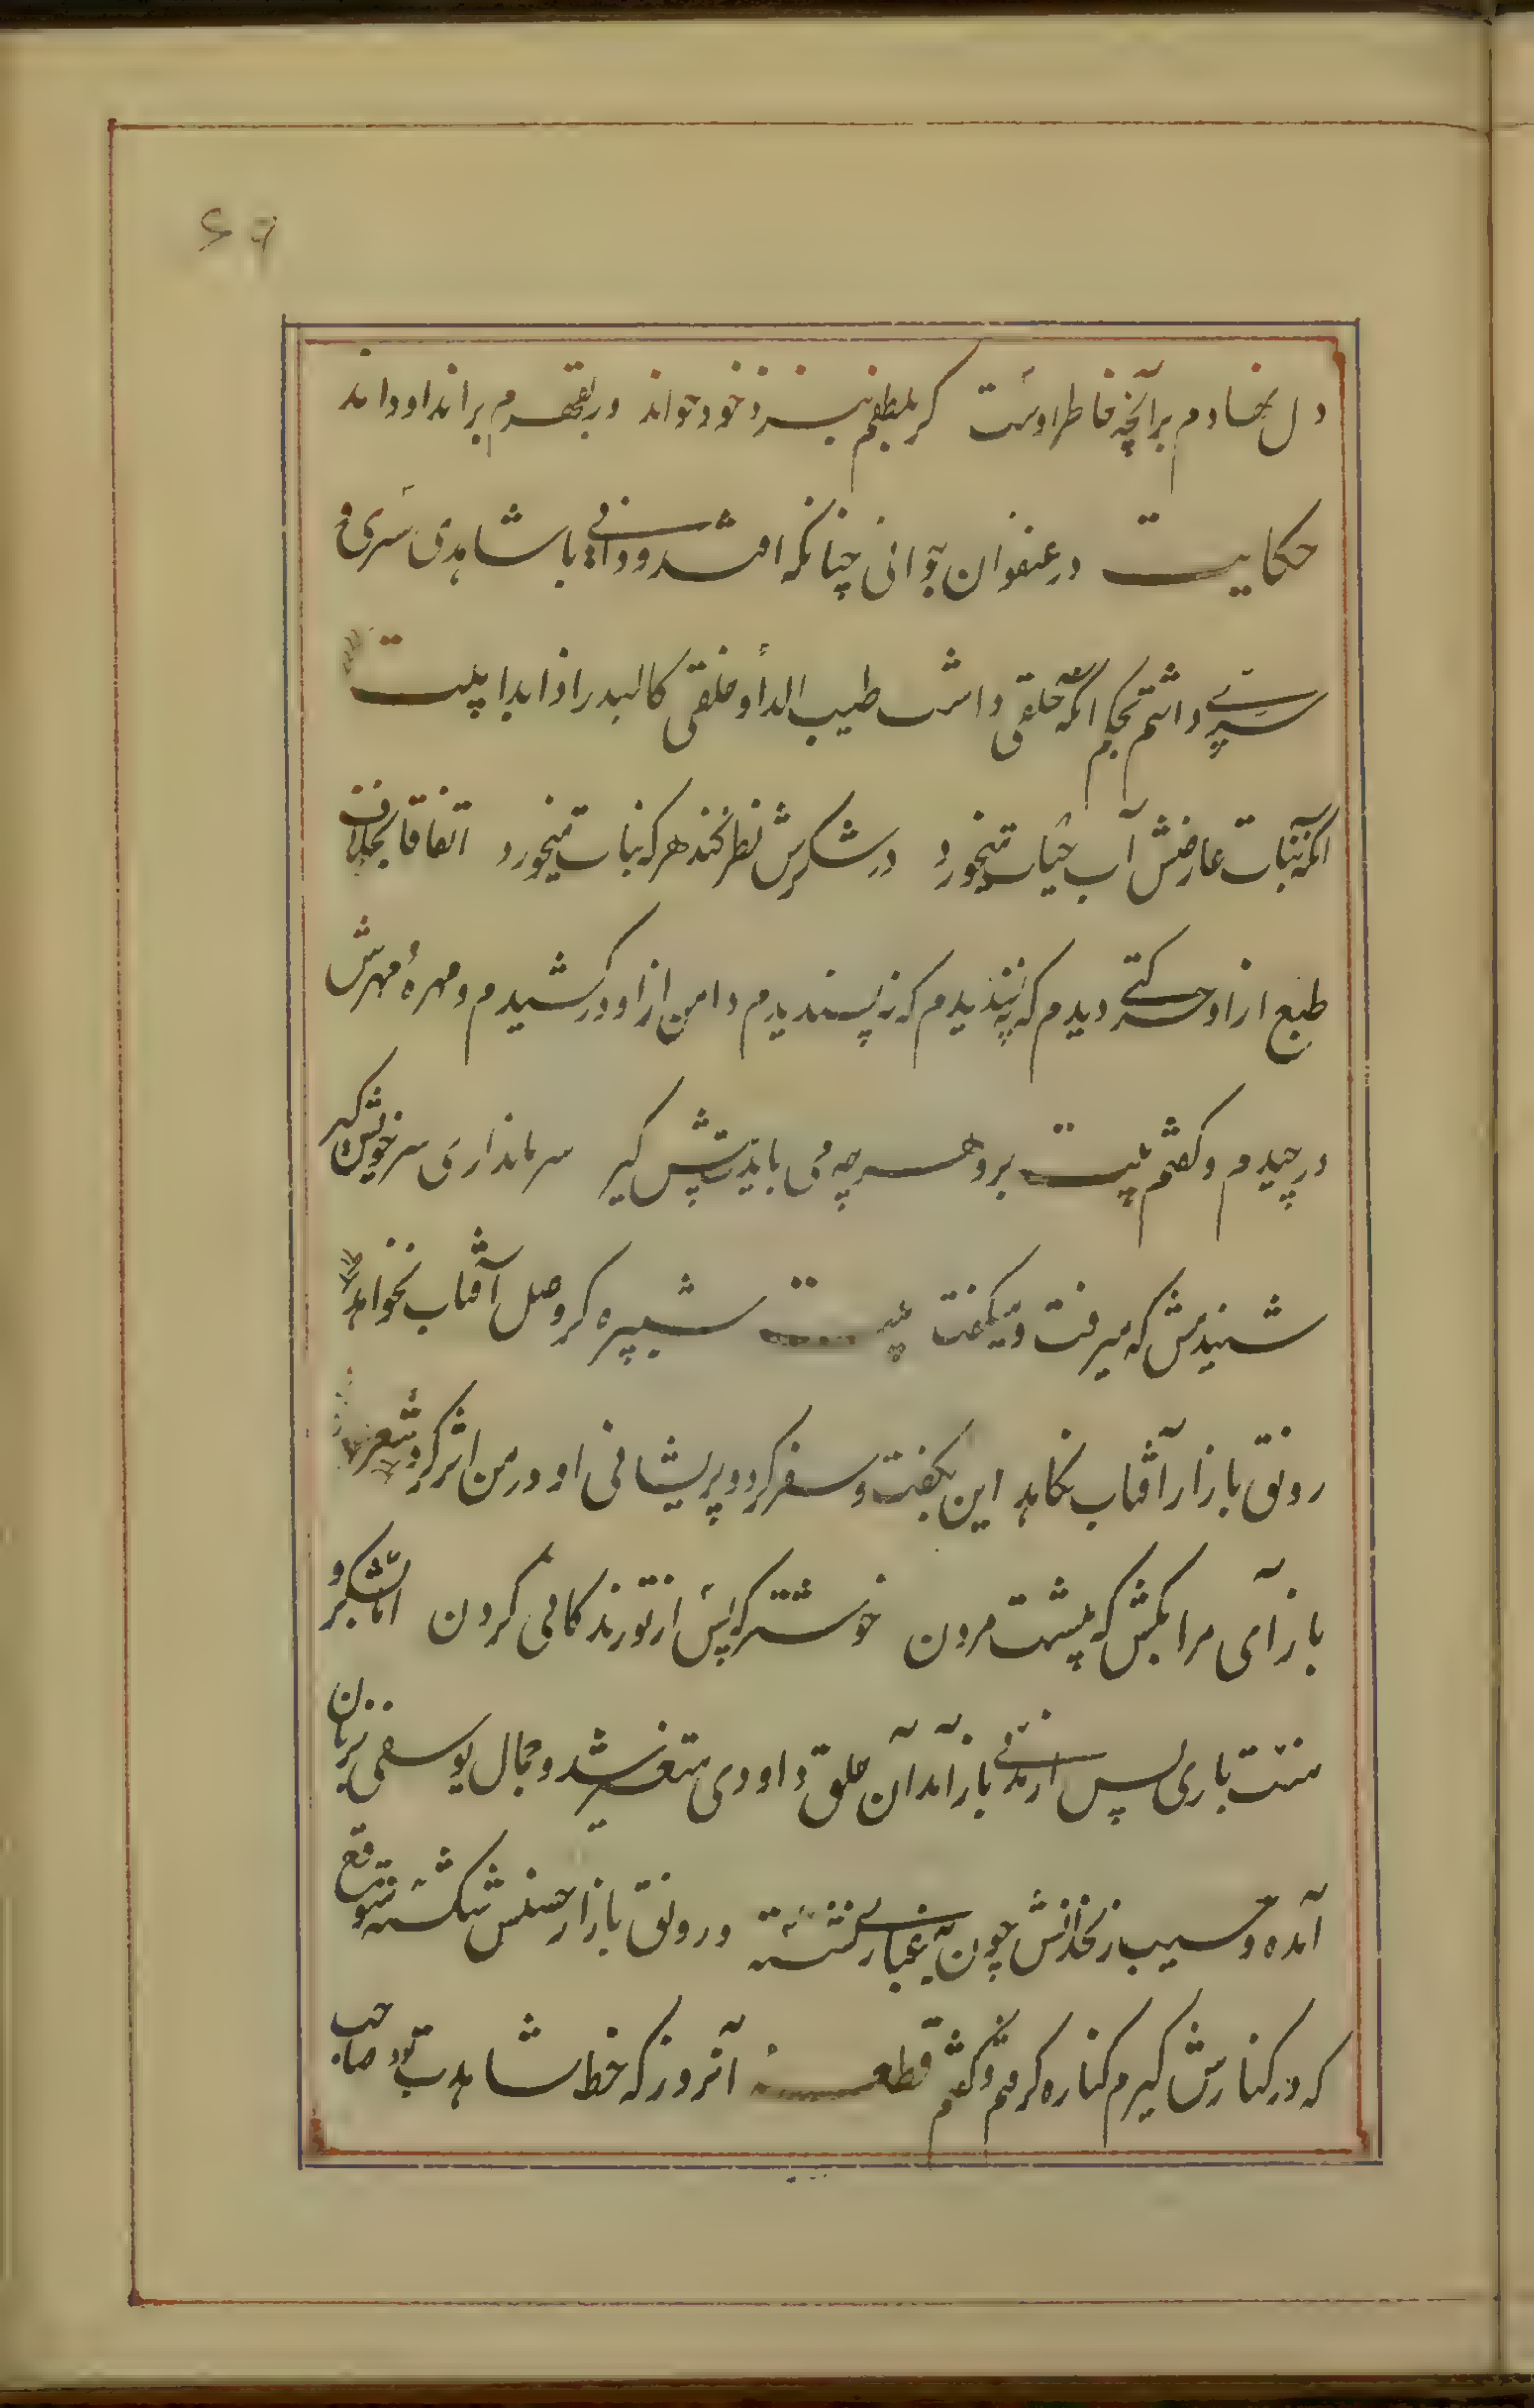 ۶۹
دل نهادم بر آنچه خاطر اوست گر بلطفم بنزد خود خواند ور بقهرم براند او داند
حکایت در عنفوان جوانی چنانکه افتد و دانی با شاهدی سَری و
سِرّی داشتم بحکم آنکه حلقی داشت طیب الادا و خلقی کالبدر اذا بدا بیت
آنکه نبات عارضش آب حیات میخورد در شکرش نظر کند هر که نبات میخورد اتفاقا بخلاف
طبع از او حرکتی دیدم که نپسندیدم دامن از او در کشیدم و مهرهٔ مهرش
در چیدم و گفتم بیت برو هر چه می بایدت پیش گیر سر ما نداری سر خویش گیر
شنیدمش که میرفت و میگفت بیت شب پره گر وصل آفتاب نخواهد
رونق بازار آفتاب نکاهد این بگفت و سفر کرد و پریشانی او در من اثر کرد شعر
باز آی مرا بکش که پیشت مردن خوشتر که پس از تو زندگانی کردن اما بشکر و
منت باری پس از مدتی باز آمد آن حلق داودی متغیر شده و جمال یوسفی بزیان
آمده و سیب زنخدانش چون به غباری نشسته و رونق بازار حسنش شکسته متوقع
که در کنارش گیرم کناره گرفتم و گفتم قطعه آنروز که خط شاهدت بود صاحب